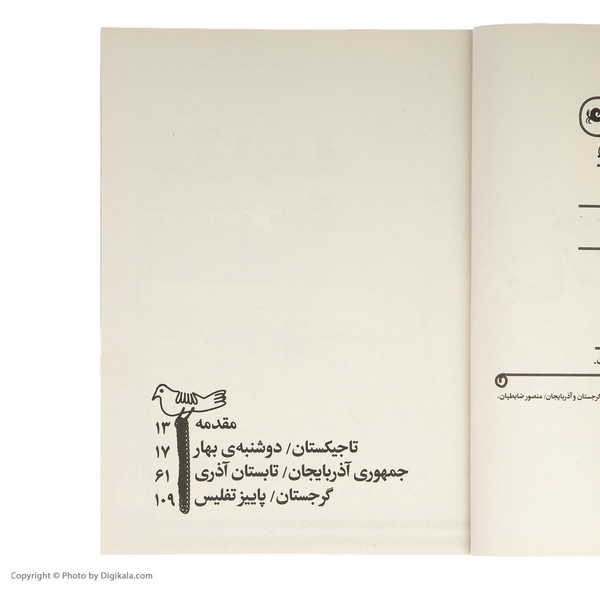 گرجستان و آذربایجان/ منصور ضابطیان.
مقدمه ۱۳
تاجیکستان/ دوشنبه‌ی بهار ۱۷
جمهوری آذربایجان/ تابستان آذری ۶۱
گرجستان/ پاییز تفلیس ۱۰۹
Copyright © Photo by Digikala.com